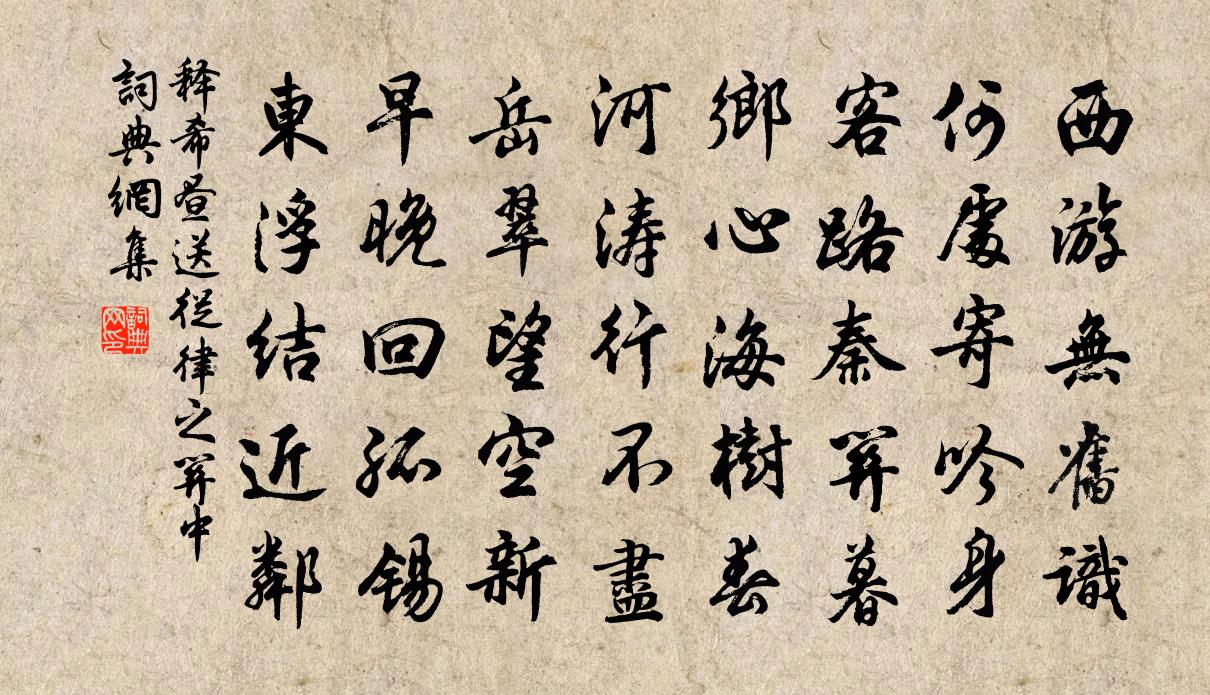 西游無舊識
何處寄吟身
客路秦關暮
鄉心海樹春
河濤行不盡
岳翠望空新
早晚回孤錫
東浮結近鄰
释希晝送從律之關中
詞典網集
詞典网印